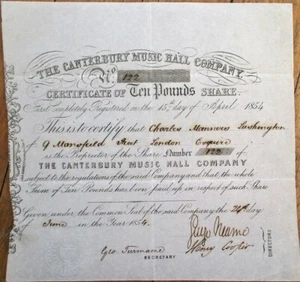 THE CANTERBURY MUSIC HALL COMPANY
No. 122
CERTIFICATE OF Ten Pounds SHARE.
Completely Registered on the 15th day of April 1854
This is to certify that Charles Manners Lushington
of 9 Mansfield Street London Esquire
is the Proprietor of the Share Number 122 of
THE CANTERBURY MUSIC HALL COMPANY
subject to the regulations of the said Company and that the whole
Sum of Ten Pounds has been paid up in respect of such Share
Given under the Common Seal of the said Company the 24th day
June in the Year 1854.
Geo
SECRETARY
Henry Cooper
DIRECTORS